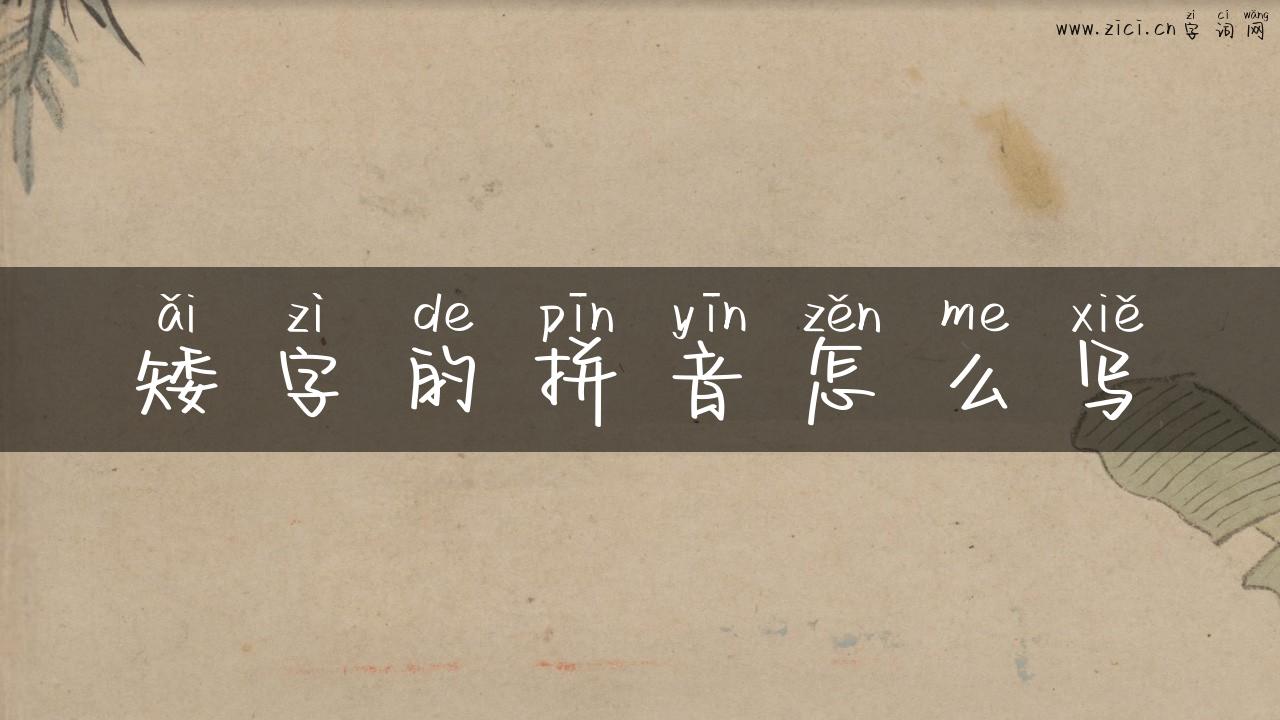 zì cí wǎng
www.zici.cn 字 词 网
ǎi zì de pīn yīn zěn me xiě
矮 字 的 拼 音 怎 么 写